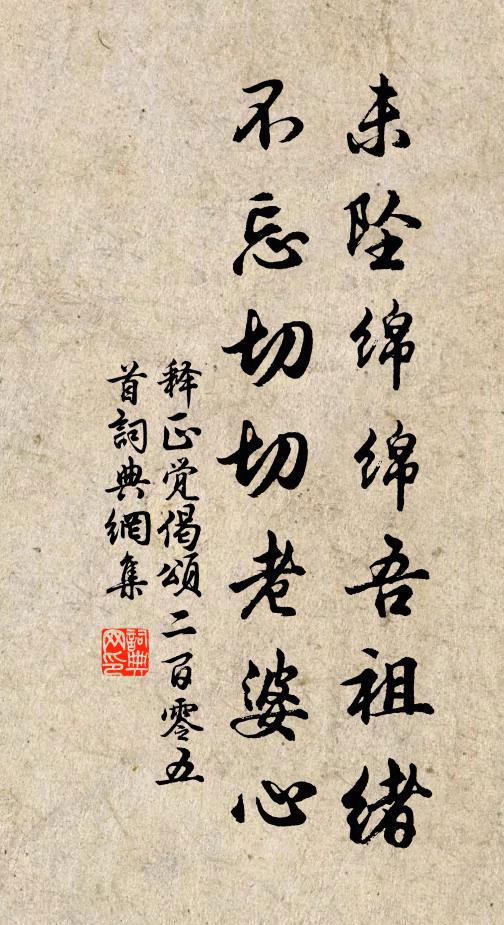 未坠绵绵吾祖绪
不忘切切老婆心
释正觉偈颂二百零五
首詞典網集
詞典
网印